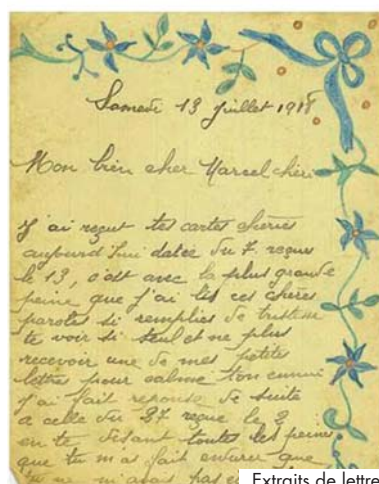 Samedi 13 Juillet 1918
Mon bien cher Marcel chéri
J'ai reçut tes cartes chéries
aujourd'hui datée du 7 reçue
le 13, c'est avec la plus grande
peine que j'ai lis ces chères
paroles si remplies de tristesse
te voir si seul et ne plus
recevoir une de mes petites
lettres pour calme ton ennui
J'ai fait reponse de suite
a celle du 27 reçue le 2
en te disant toutes les peines
que tu m'as fait endurer que
tu ne m'avais pas
Extraits de lettre